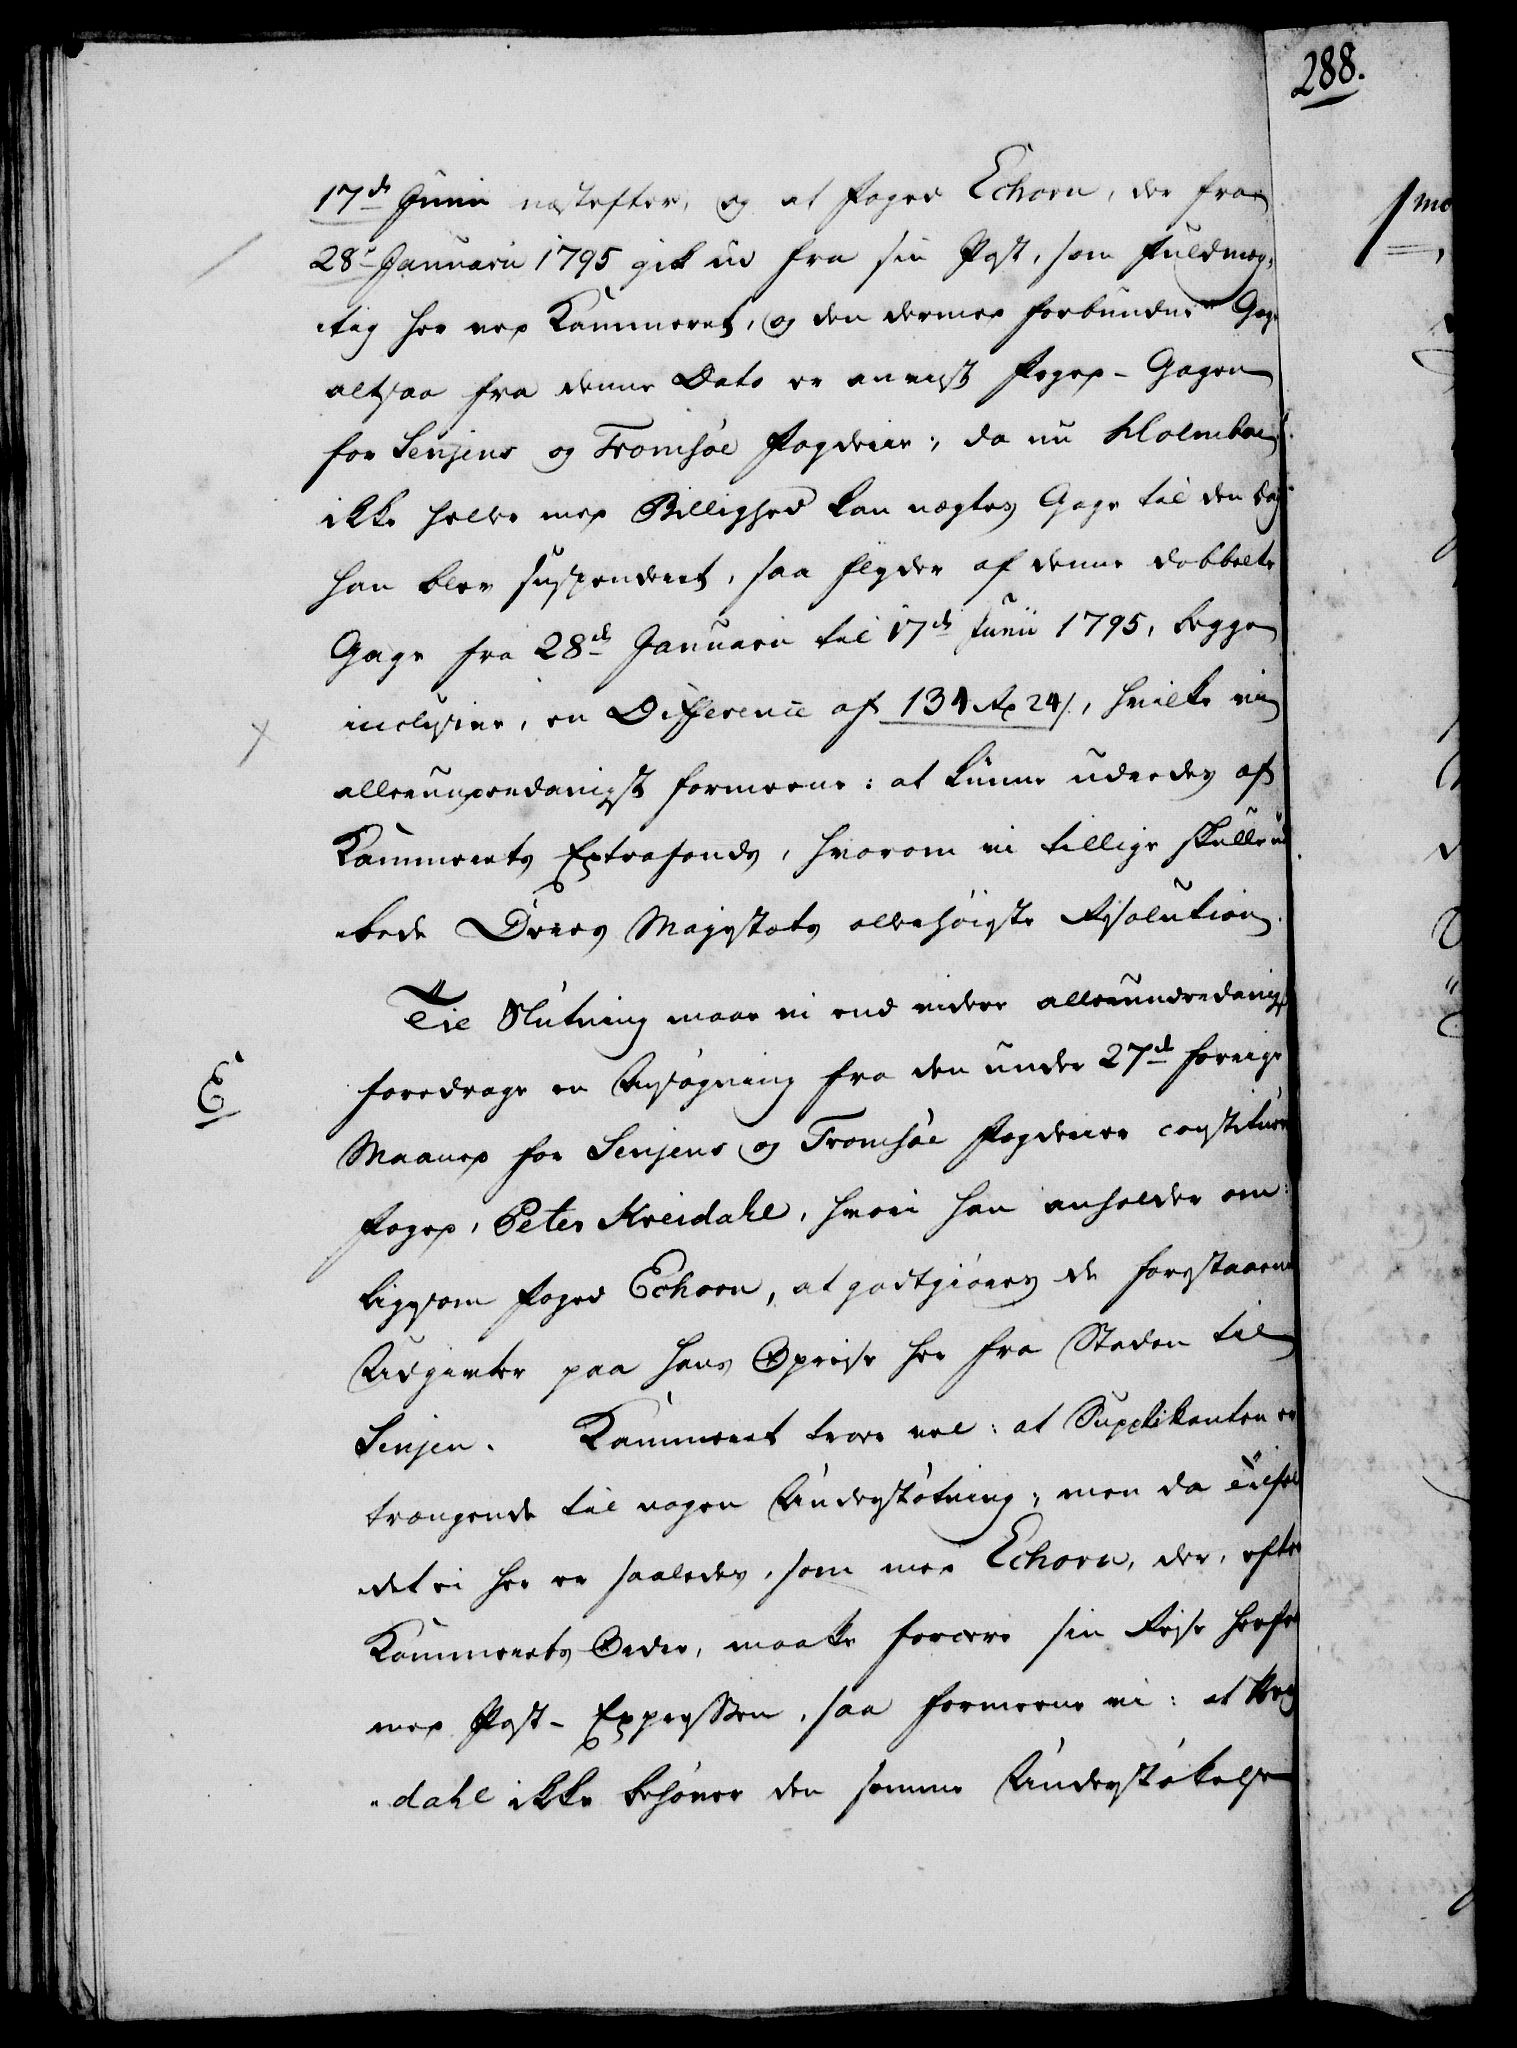 288.
17de Junii næstefter, og at Foged Echorn, der fra
28de Januarii 1795 gik ud fra sin Post, som Fuldmæg-
tig her ved Kammeret, og den dermed forbundne Gage
altsaa fra denne Dato er anvist Foged-Gagen
for Senjens og Tromsøe Fogderier; da nu Holmboe
ikke heller med Billighed kan nægtes Gage til den Dag
han blev suspenderet, saa flyder af denne dobbelte
Gage fra 28de Januarii til 17de Junii 1795, begge
inclusive, en Difference af 134 Rd 24 s., hvilke vi
allerunderdanigst formeene: at kunne udredes af
Kammerets Extrafonds, hvorom vi tillige skulle ud-
bede Deres Majestæts allerhøigste Resolution.
Til Slutning maae vi end videre allerunderdanigst
E
foredrage en Ansøgning fra den under 27de forrige
Maaned for Senjens og Tromsøe Fogderier constituerede
Foged, Peter Kreidahl, hvori han anholder om:
ligesom Foged Echorn, at godtgiøres de forestaaende
Udgivter paa hans Opreise her fra Staden til
Senjen. Kammeret troer vel: at Supplikanten er
trængende til nogen Understøtning; men da Tilfæl-
det ei her er saaledes, som med Echorn, der, efter
Kammerets Ordre, maatte forcere sin Reise herfra
med Post-Expressen, saa formeene vi: at Krei-
dahl ikke behøver den samme Understøttelse
1mo